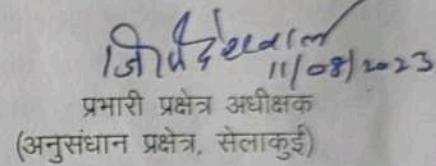 11/08/2023
प्रभारी प्रक्षेत्र अधीक्षक
(अनुसंधान प्रक्षेत्र, सेलाकुई)